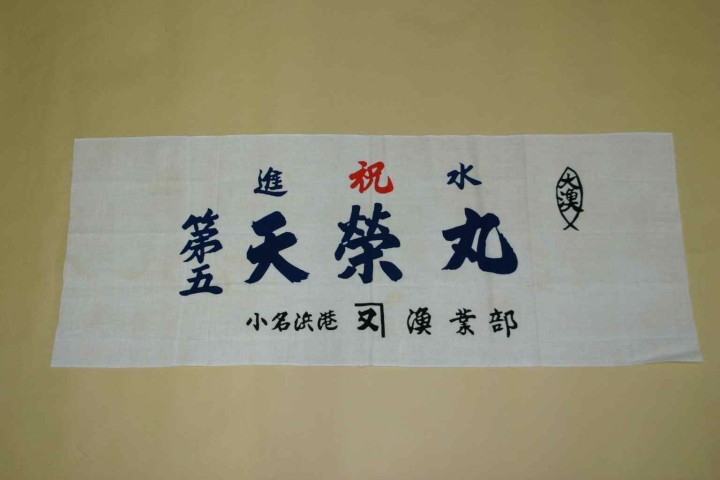 進祝水
第五天榮丸
小名浜港 又 漁業部
大漁